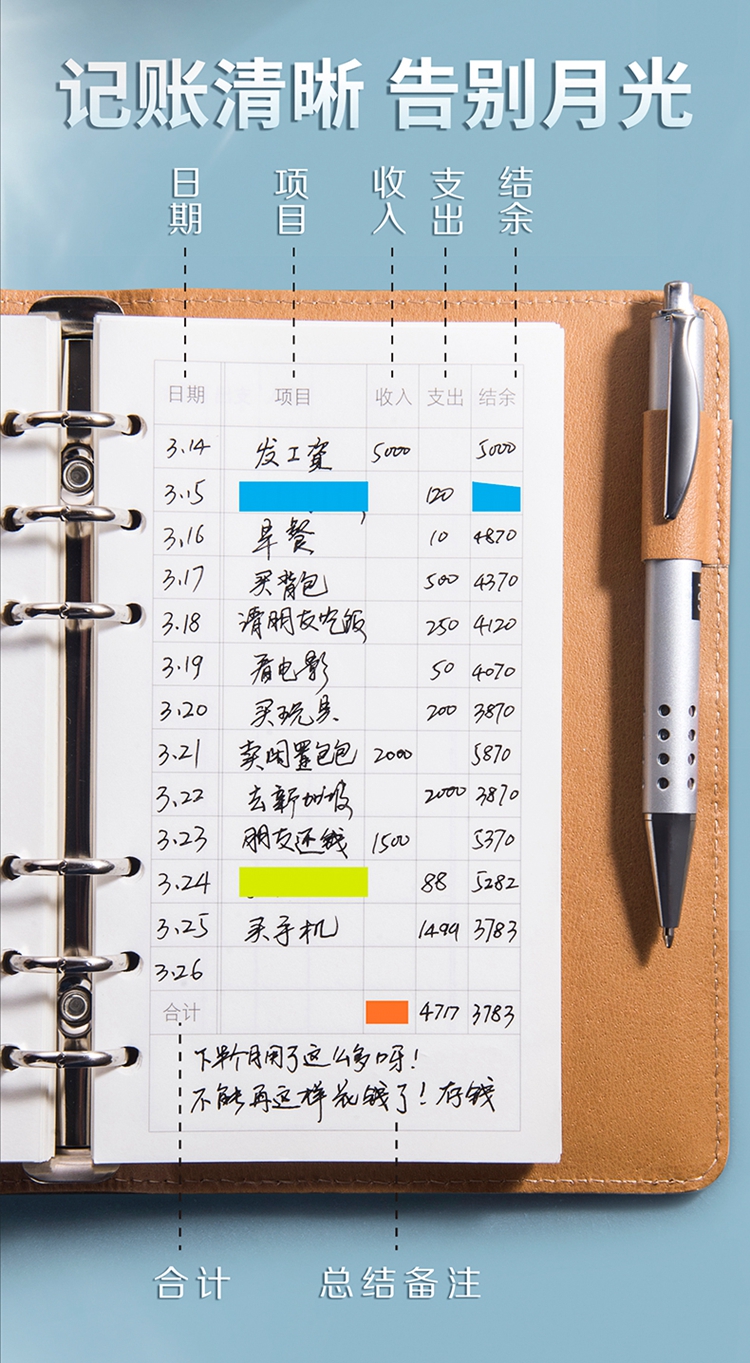 记账清晰 告别月光
日期 项目 收入 支出 结余
日期 项目 收入 支出 结余
3.14 发工资 5000 5000
3.15 120
3.16 早餐 10 4870
3.17 买背包 500 4370
3.18 请朋友吃饭 250 4120
3.19 看电影 50 4070
3.20 买玩具 200 3870
3.21 卖闲置包包 2000 5870
3.22 去新加坡 2000 3870
3.23 朋友还钱 1500 5370
3.24 88 5282
3.25 买手机 1499 3783
3.26
合计 4717 3783
下半个月用了这么多呀!
不能再这样花钱了!存钱
合计 总结备注